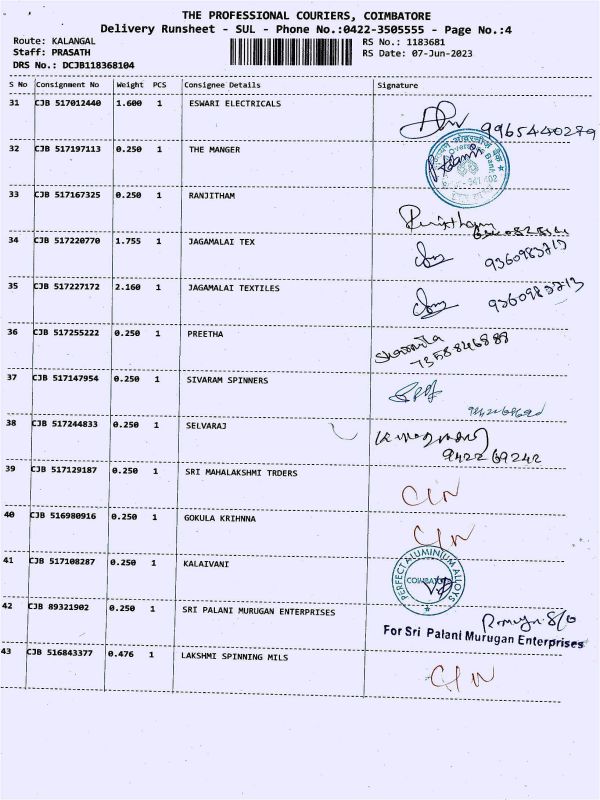 THE PROFESSIONAL COURIERS, COIMBATORE
Delivery Runsheet - SUL - Phone No.:0422-3505555 - Page No.:4
Route: KALANGAL
RS No.: 1183681
Staff: PRASATH
RS Date: 07-Jun-2023
DRS No.: DCJB118368104
S No Consignment No Weight PCS Consignee Details Signature
31 CJB 517012440 1.600 1 ESWARI ELECTRICALS
9965440279
32 CJB 517197113 0.250 1 THE MANGER
33 CJB 517167325 0.250 1 RANJITHAM
Ranjitham
34 CJB 517220770 1.755 1 JAGAMALAI TEX
9360983713
35 CJB 517227172 2.160 1 JAGAMALAI TEXTILES
9360983713
36 CJB 517255222 0.250 1 PREETHA
Sharmila
7358846888
37 CJB 517147954 0.250 1 SIVARAM SPINNERS
38 CJB 517244833 0.250 1 SELVARAJ
942269242
39 CJB 517129187 0.250 1 SRI MAHALAKSHMI TRDERS
C/N
40 CJB 516980916 0.250 1 GOKULA KRIHNNA
C/N
41 CJB 517108287 0.250 1 KALAIVANI
PERFECT ALUMINIUM ALLOYS
42 CJB 89321902 0.250 1 SRI PALANI MURUGAN ENTERPRISES
For Sri Palani Murugan Enterprises
43 CJB 516843377 0.476 1 LAKSHMI SPINNING MILS
C/N